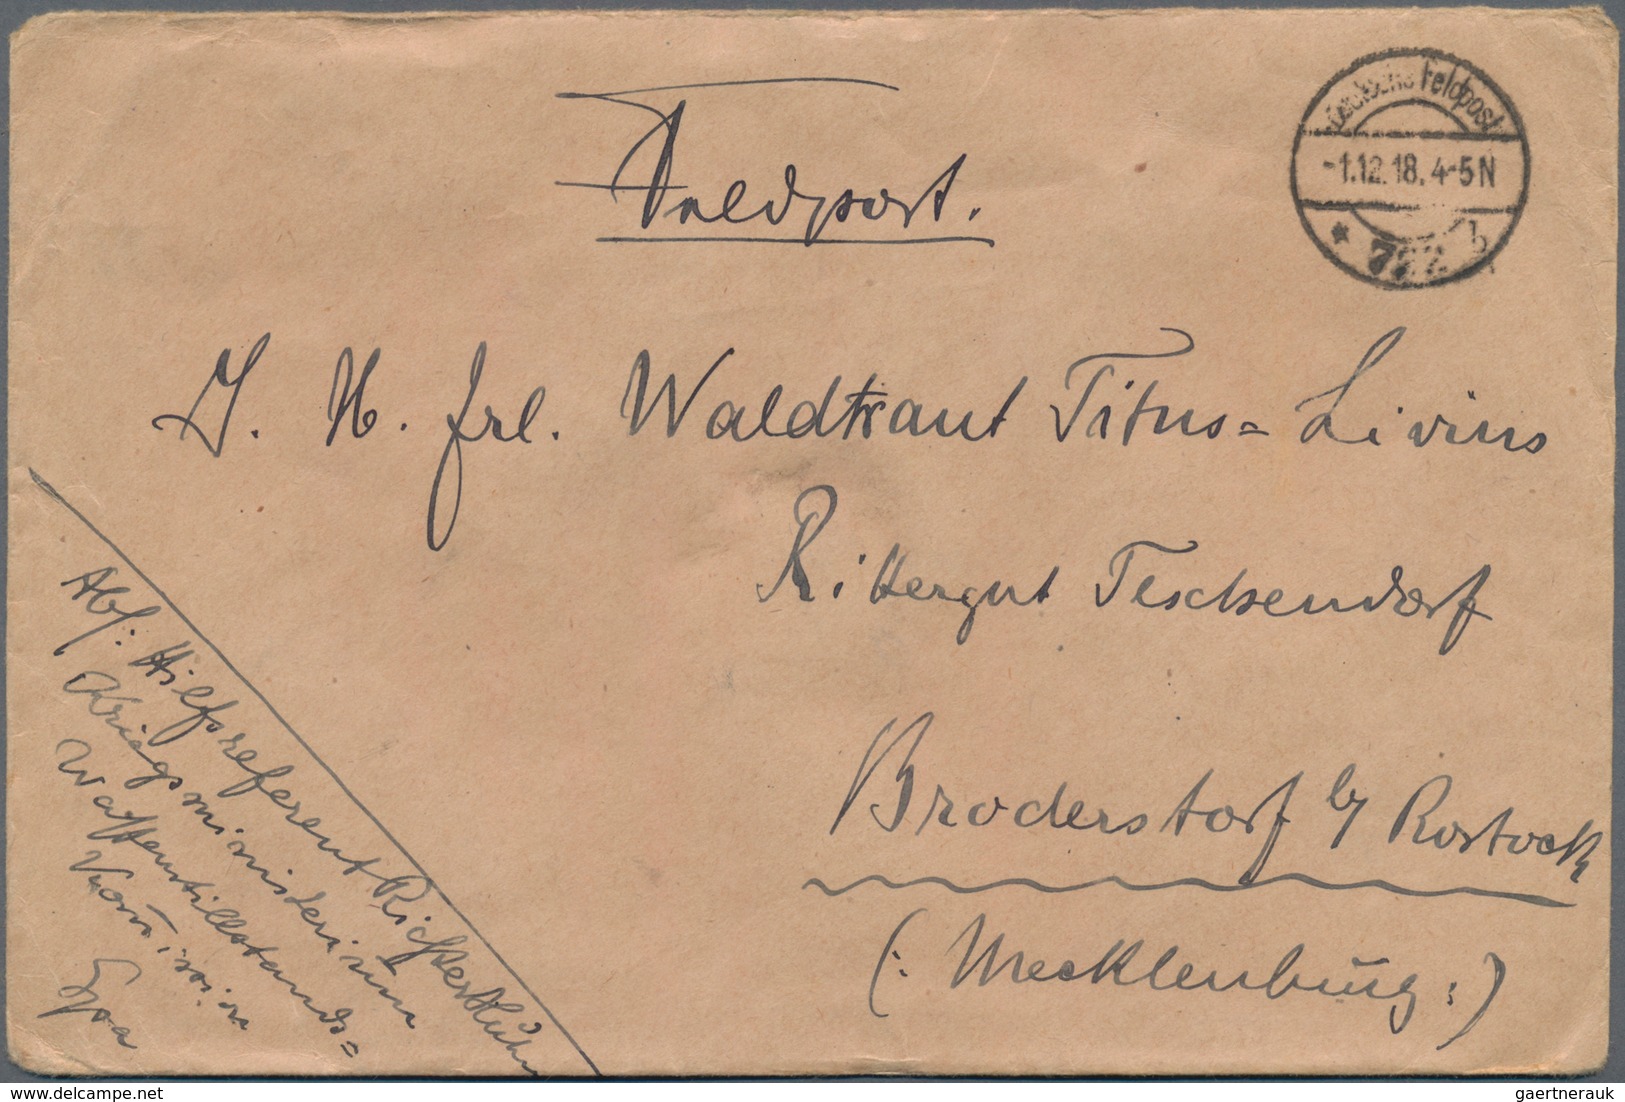 Feldpost.
Deutsche Feldpost
-1.12.18. 4-5N
* b
I. H. Frl. Waldtraut Titus= Livius
Rittergut Teschendorf
Broderstorf b/ Rostock
(: Mecklenburg :)
Abs: Hilfsreferent Richter
Kriegsministerium
Waffenstillstands=
Kom̄ission
Spa
delcampe.net
gaertnerauk